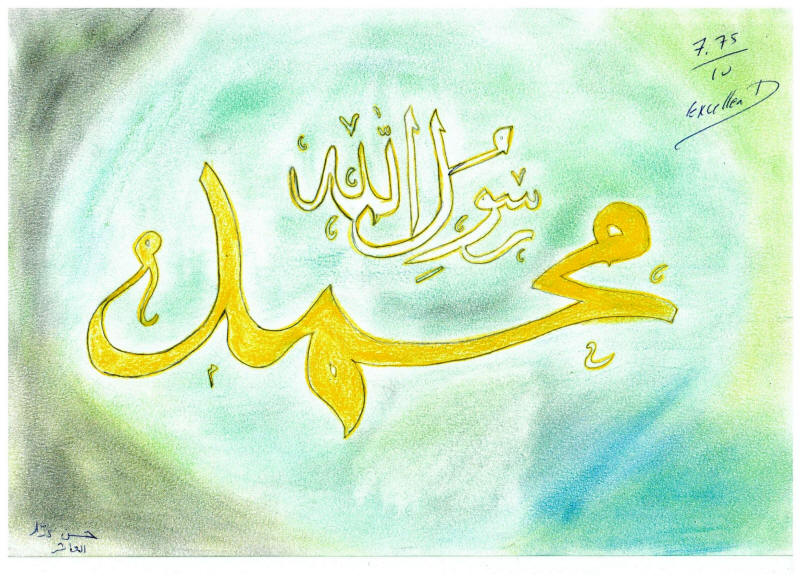 7.75
10
Excellent
رسول الله
محمد
حسن
العاشر